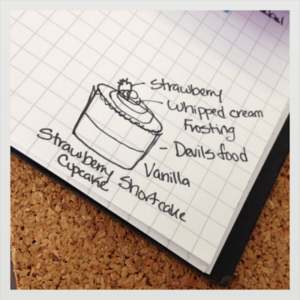 Strawberry
Whipped cream
Frosting
Devils food
Vanilla
Strawberry Shortcake
Cupcake